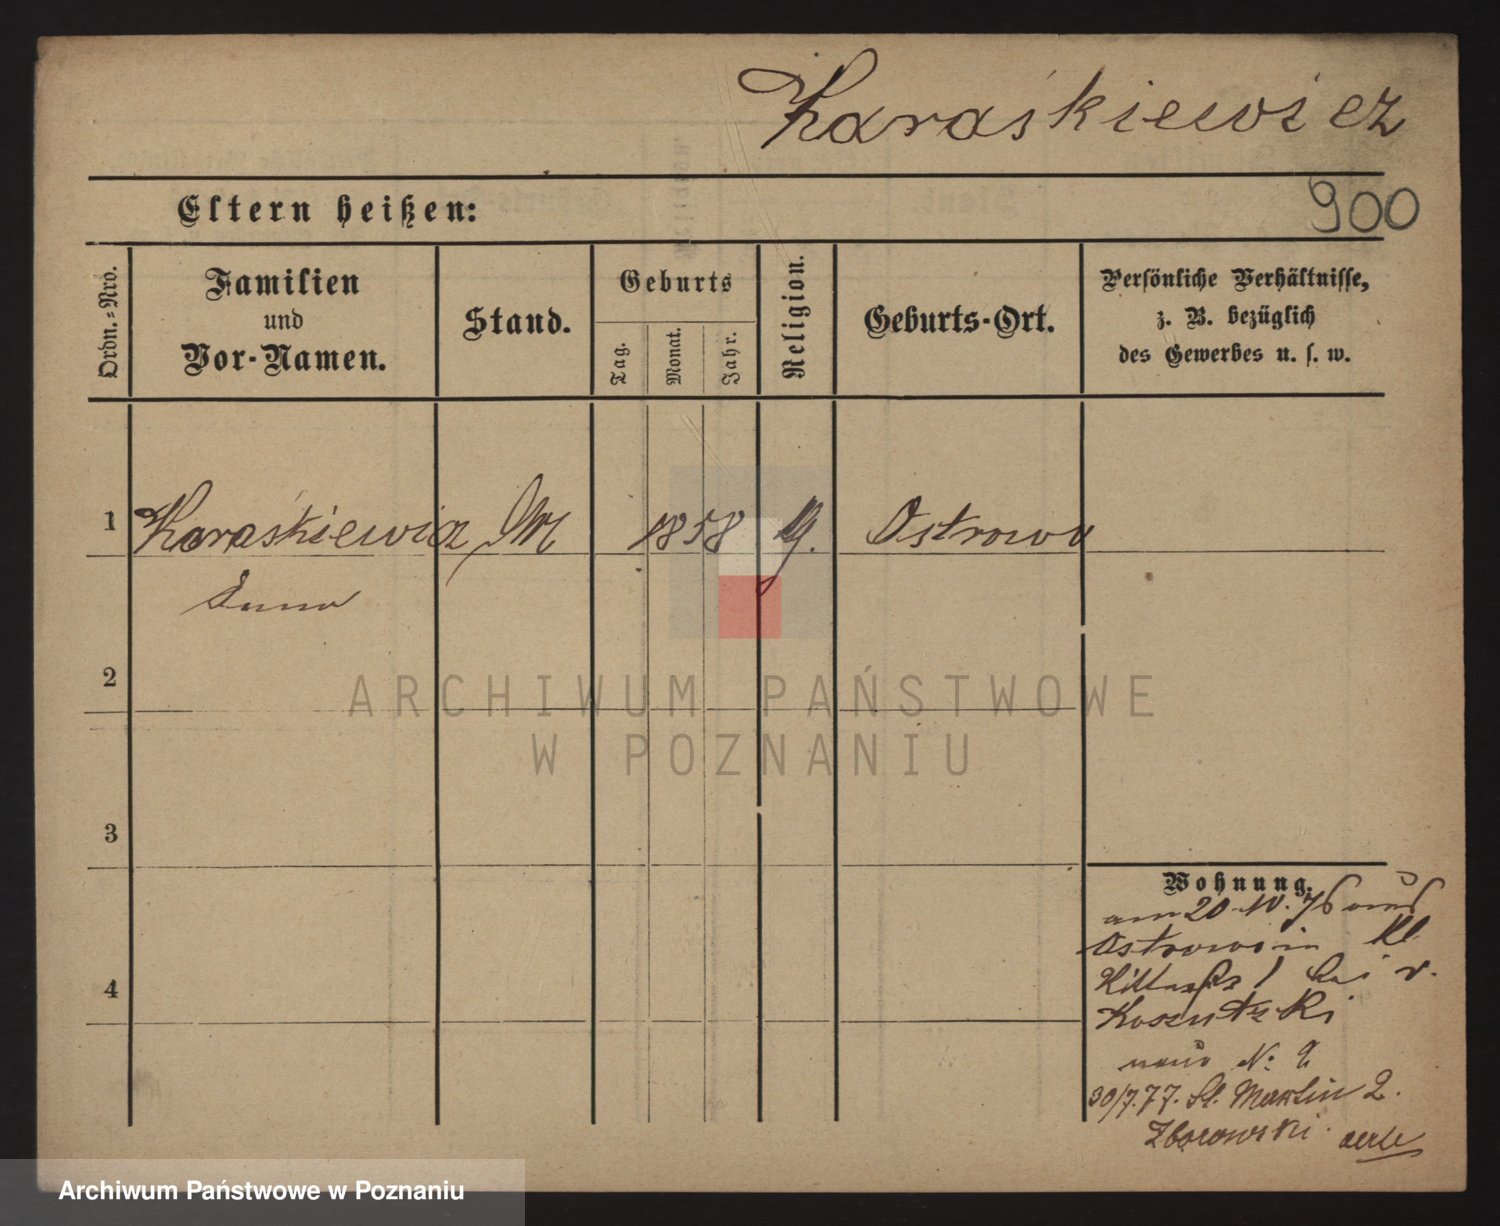 Karaśkiewicz
900
Eltern heißen:
Ordn.-Nro.
Familien
und
Vor-Namen.
Stand.
Geburts
Tag.
Monat.
Jahr.
Religion.
Geburts-Ort.
Persönliche Verhältnisse,
z. B. bezüglich
des Gewerbes u. s. w.
1 Karaśkiewicz M 1858 Ostrowo
Anna
2
3
4
Wohnung.
am 20. 10. 76 aus
Ostrowo in Kl.
Ritterstr 1 bei v.
Koszutski
neue No: 9
30/7.77. St. Martin 2.
Zborowski
ARCHIWUM PAŃSTWOWE
W POZNANIU
Archiwum Państwowe w Poznaniu